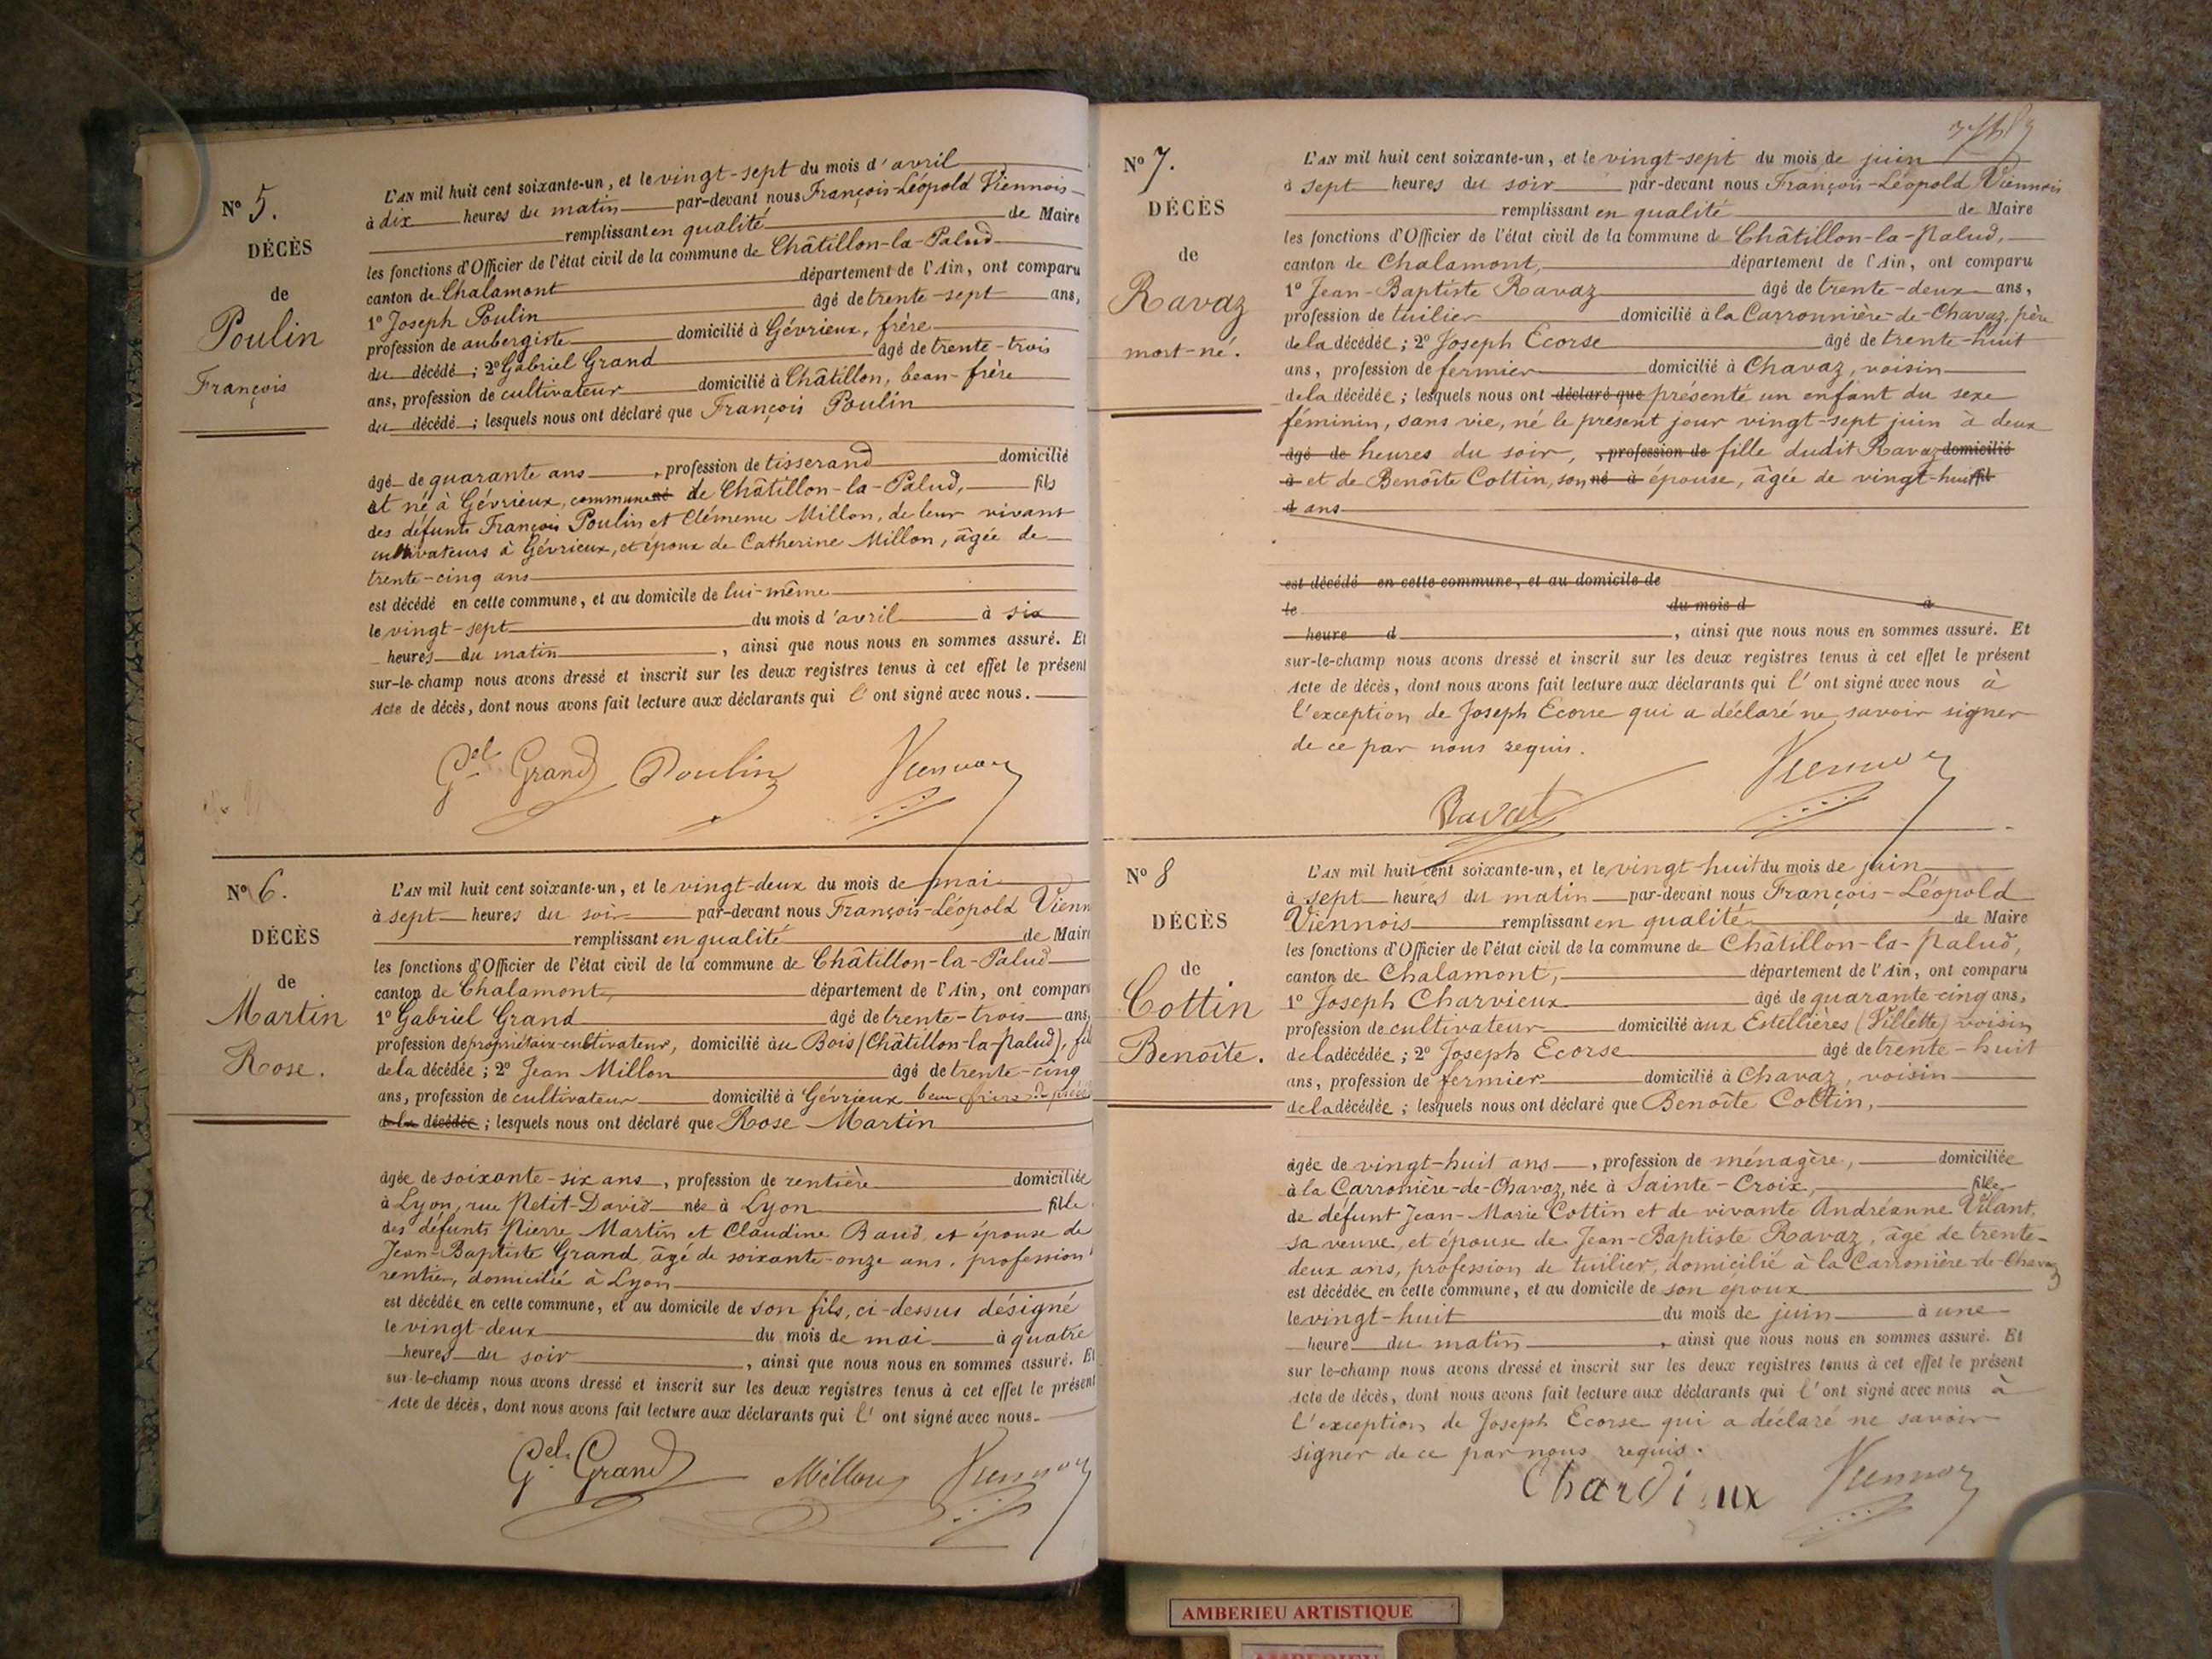 N° 5.
DÉCÈS
de
Poulin
François
L'AN mil huit cent soixante-un, et le vingt-sept du mois d'avril
à dix heures du matin par-devant nous François-Léopold Viennois
remplissant en qualité de Maire
les fonctions d'Officier de l'état civil de la commune de Châtillon-la-Palud
canton de Chalamont département de l'Ain, ont comparu
1° Joseph Poulin âgé de trente-sept ans,
profession de aubergiste domicilié à Gévrieux, frère
du décédé ; 2° Gabriel Grand âgé de trente-trois
ans, profession de cultivateur domicilié à Châtillon, beau-frère
du décédé ; lesquels nous ont déclaré que François Poulin
âgé de quarante ans, profession de tisserand domicilié
et né à Gévrieux, commune né de Châtillon-la-Palud, fils
des défunts François Poulin et Clémence Millon, de leur vivant
cultivateurs à Gévrieux, et époux de Catherine Millon, âgée de
trente-cinq ans
est décédé en cette commune, et au domicile de lui-même
le vingt-sept du mois d'avril à six
heures du matin, ainsi que nous nous en sommes assuré. Et
sur-le-champ nous avons dressé et inscrit sur les deux registres tenus à cet effet le présent
Acte de décès, dont nous avons fait lecture aux déclarants qui l'ont signé avec nous.
Gel Grand Poulin Viennois
N° 6.
DÉCÈS
de
Martin
Rose.
L'AN mil huit cent soixante-un, et le vingt-deux du mois de mai
à sept heures du soir par-devant nous François-Léopold Vienn
remplissant en qualité de Maire
les fonctions d'Officier de l'état civil de la commune de Châtillon-la-Palud
canton de Chalamont, département de l'Ain, ont comparu
1° Gabriel Grand âgé de trente-trois ans,
profession de propriétaire-cultivateur, domicilié au Bois (Châtillon-la-Palud), fils
de la décédée ; 2° Jean Millon âgé de trente-cinq
ans, profession de cultivateur domicilié à Gévrieux beau frère du
de la décédée ; lesquels nous ont déclaré que Rose Martin
âgée de soixante-six ans, profession de rentière domiciliée
à Lyon, rue Petit-David née à Lyon fille
des défunts Pierre Martin et Claudine Baud, et épouse de
Jean-Baptiste Grand, âgé de soixante-onze ans, profession
rentier, domicilié à Lyon
est décédée en cette commune, et au domicile de son fils, ci-dessus désigné
le vingt-deux du mois de mai à quatre
heures du soir, ainsi que nous nous en sommes assuré. Et
sur-le-champ nous avons dressé et inscrit sur les deux registres tenus à cet effet le présent
Acte de décès, dont nous avons fait lecture aux déclarants qui l'ont signé avec nous.
Gel Grand Millon Viennois
N° 7.
DÉCÈS
de
Ravaz
mort-né.
L'AN mil huit cent soixante-un, et le vingt-sept du mois de juin
à sept heures du soir par-devant nous François-Léopold Viennois
remplissant en qualité de Maire
les fonctions d'Officier de l'état civil de la commune de Châtillon-la-Palud,
canton de Chalamont, département de l'Ain, ont comparu
1° Jean-Baptiste Ravaz âgé de trente-deux ans,
profession de tuilier domicilié à la Carronnière-de-Chavaz, père
de la décédée ; 2° Joseph Ecorse âgé de trente-huit
ans, profession de fermier domicilié à Chavaz, voisin
de la décédée ; lesquels nous ont déclaré que présenté un enfant du sexe
féminin, sans vie, né le présent jour vingt-sept juin à deux
âgé de heures du soir, , profession de fille dudit Ravaz domicilié
à et de Benoîte Cottin, son né à épouse, âgée de vingt-huit fil
d ans
est décédé en cette commune, et au domicile de
le du mois d à
heure d , ainsi que nous nous en sommes assuré. Et
sur-le-champ nous avons dressé et inscrit sur les deux registres tenus à cet effet le présent
Acte de décès, dont nous avons fait lecture aux déclarants qui l'ont signé avec nous à
l'exception de Joseph Ecorse qui a déclaré ne savoir signer
de ce par nous requis.
Ravat Viennois
N° 8
DÉCÈS
de
Cottin
Benoîte.
L'AN mil huit cent soixante-un, et le vingt-huit du mois de juin
à sept heures du matin par-devant nous François-Léopold
Viennois remplissant en qualité de Maire
les fonctions d'Officier de l'état civil de la commune de Châtillon-la-Palud,
canton de Chalamont, département de l'Ain, ont comparu
1° Joseph Charvieux âgé de quarante-cinq ans,
profession de cultivateur domicilié aux Estellières (Villette) voisin
de la décédée ; 2° Joseph Ecorse âgé de trente-huit
ans, profession de fermier domicilié à Chavaz, voisin
de la décédée ; lesquels nous ont déclaré que Benoîte Cottin,
âgée de vingt-huit ans, profession de ménagère, domiciliée
à la Carronière-de-Chavaz, née à Sainte-Croix, fille
de défunt Jean-Marie Cottin et de vivante Andréanne Vilant,
sa veuve, et épouse de Jean-Baptiste Ravaz, âgé de trente-
deux ans, profession de tuilier, domicilié à la Carronière-de-Chavaz
est décédée en cette commune, et au domicile de son époux
le vingt-huit du mois de juin à une
heure du matin, ainsi que nous nous en sommes assuré. Et
sur le-champ nous avons dressé et inscrit sur les deux registres tenus à cet effet le présent
Acte de décès, dont nous avons fait lecture aux déclarants qui l'ont signé avec nous à
l'exception de Joseph Ecorse qui a déclaré ne savoir
signer de ce par nous requis.
Charvieux Viennois
AMBERIEU ARTISTIQUE
AMBERIEU